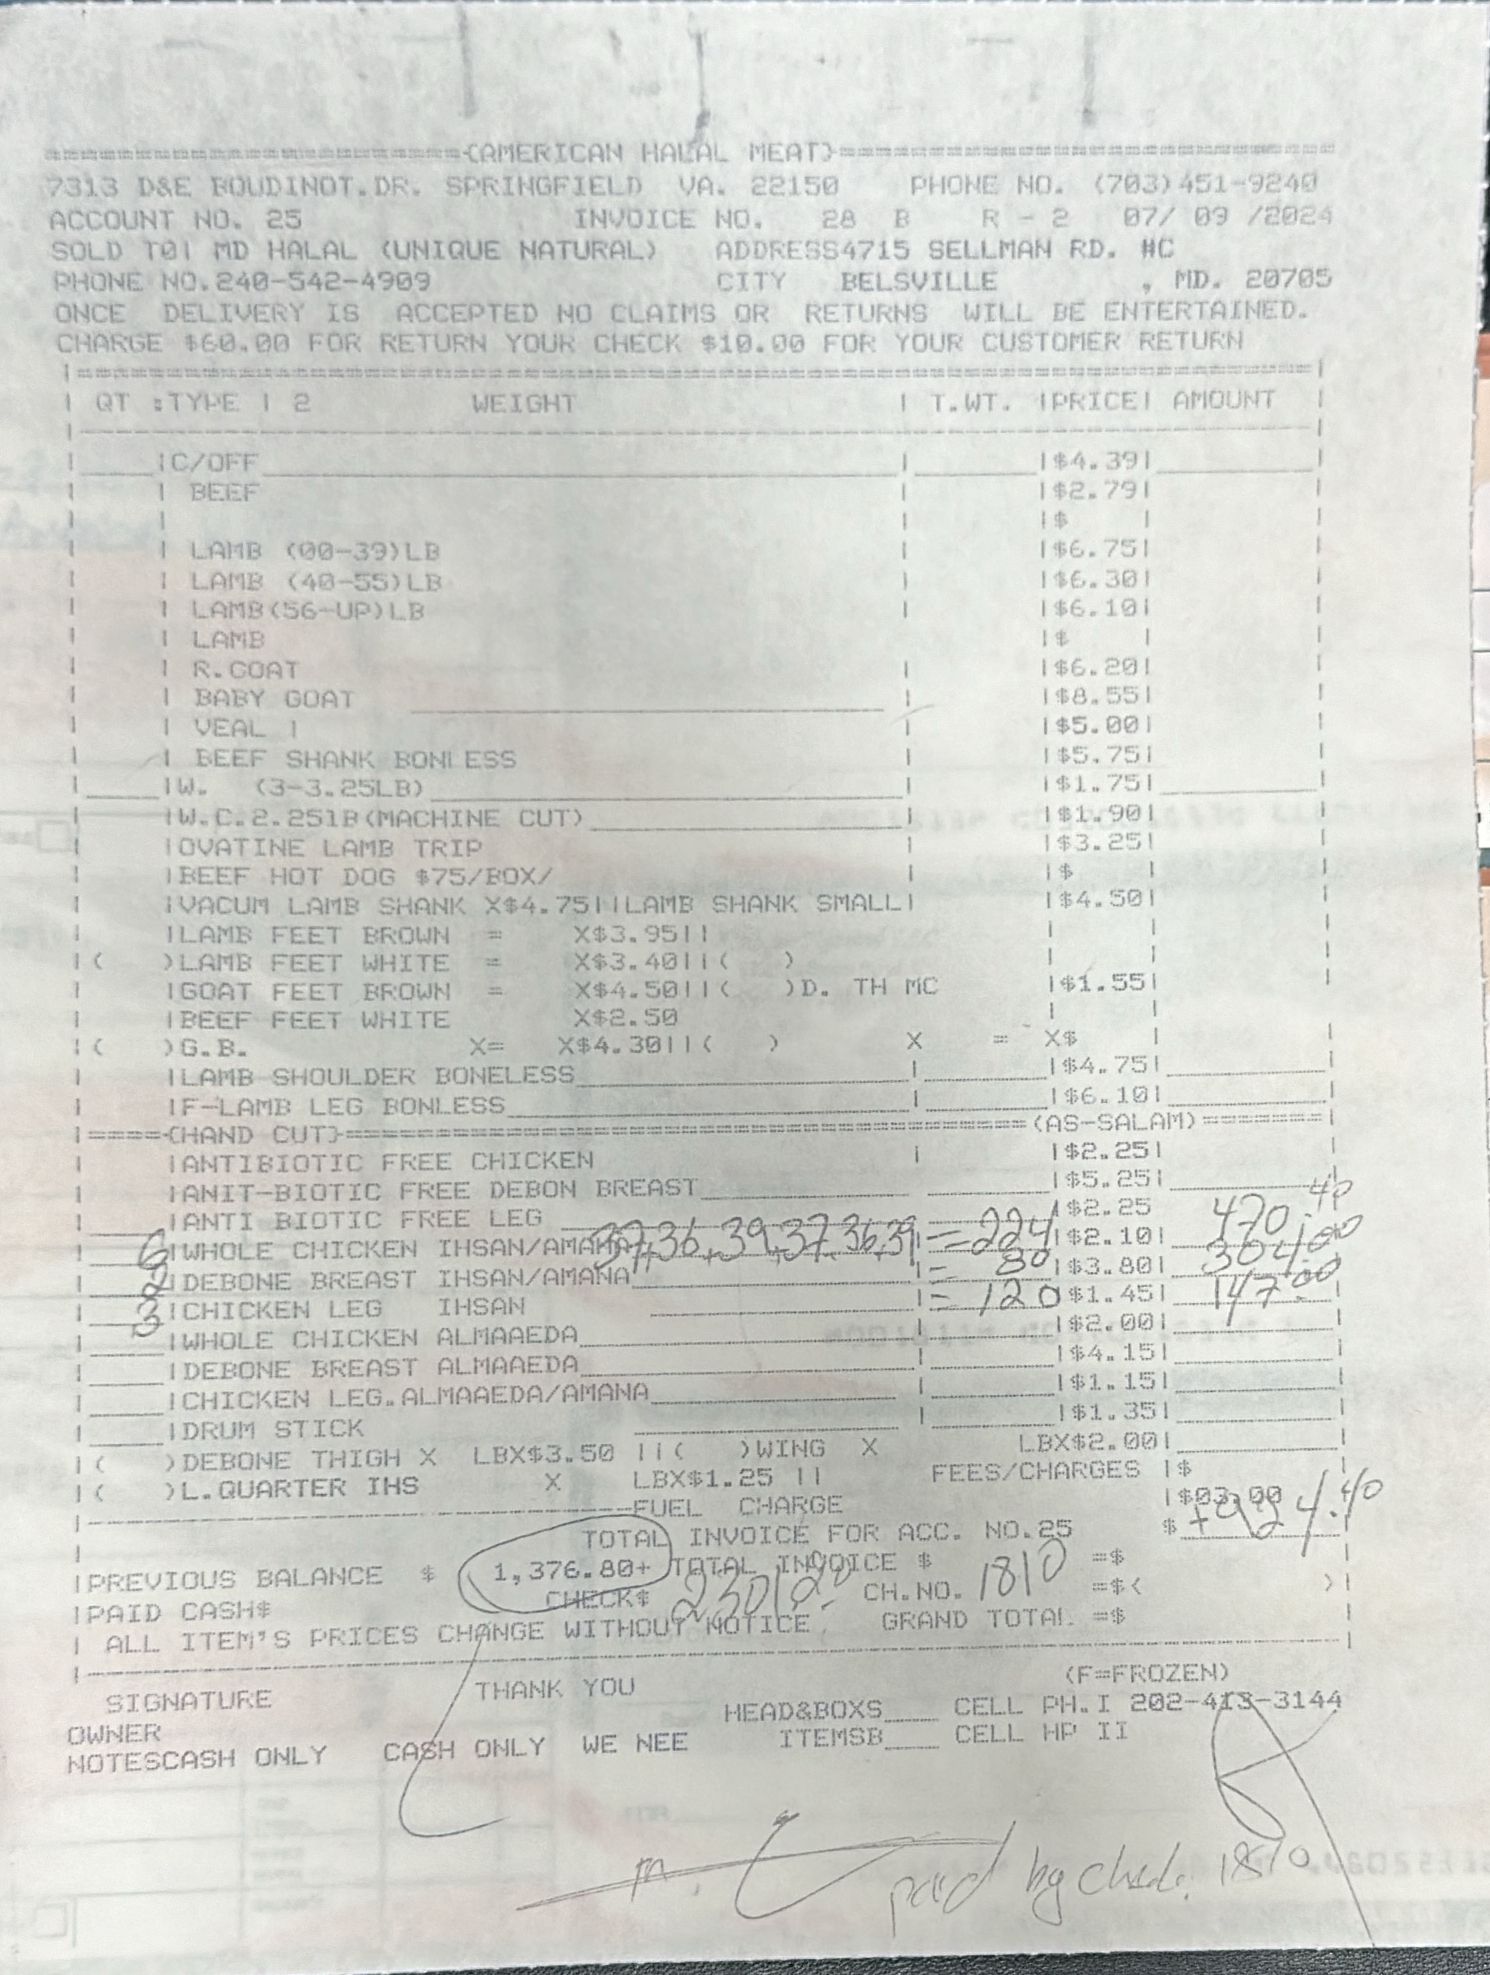 {AMERICAN HALAL MEAT}
7313 D&E BOUDINOT.DR. SPRINGFIELD VA. 22150 PHONE NO. (703)451-9240
ACCOUNT NO. 25 INVOICE NO. 28 B R - 2 07/ 09 /2024
SOLD TO| MD HALAL (UNIQUE NATURAL) ADDRESS4715 SELLMAN RD. #C
PHONE NO.240-542-4909 CITY BELSVILLE , MD. 20705
ONCE DELIVERY IS ACCEPTED NO CLAIMS OR RETURNS WILL BE ENTERTAINED.
CHARGE $60.00 FOR RETURN YOUR CHECK $10.00 FOR YOUR CUSTOMER RETURN
| QT :TYPE | 2 WEIGHT | T.WT. |PRICE| AMOUNT |
|C/OFF |$4.39|
| BEEF |$2.79|
|$ |
| LAMB (00-39)LB |$6.75|
| LAMB (40-55)LB |$6.30|
| LAMB(56-UP)LB |$6.10|
| LAMB |$ |
| R.GOAT |$6.20|
| BABY GOAT |$8.55|
| VEAL | |$5.00|
| BEEF SHANK BONLESS |$5.75|
|W. (3-3.25LB) |$1.75|
|W.C.2.25lB(MACHINE CUT) |$1.90|
|OVATINE LAMB TRIP |$3.25|
|BEEF HOT DOG $75/BOX/ |$ |
|VACUM LAMB SHANK X$4.75||LAMB SHANK SMALL| |$4.50|
|LAMB FEET BROWN = X$3.95||
|( )LAMB FEET WHITE = X$3.40||( )
|GOAT FEET BROWN = X$4.50||( )D. TH MC |$1.55|
|BEEF FEET WHITE X$2.50
|( )G.B. X= X$4.30||( ) X = X$ |
|LAMB SHOULDER BONELESS |$4.75|
|F-LAMB LEG BONLESS |$6.10|
|====={HAND CUT}=====(AS-SALAM)=======|
|ANTIBIOTIC FREE CHICKEN |$2.25|
|ANIT-BIOTIC FREE DEBON BREAST |$5.25|
|ANTI BIOTIC FREE LEG |$2.25
6 |WHOLE CHICKEN IHSAN/AMANA 37,36,39,37,36,39 = 224 |$2.10| 470.40
2 |DEBONE BREAST IHSAN/AMANA = 80 |$3.80| 304.00
3 |CHICKEN LEG IHSAN = 120 $1.45| 147.00
|WHOLE CHICKEN ALMAAEDA |$2.00|
|DEBONE BREAST ALMAAEDA |$4.15|
|CHICKEN LEG.ALMAAEDA/AMANA |$1.15|
|DRUM STICK |$1.35|
|( )DEBONE THIGH X LBX$3.50 ||( )WING X LBX$2.00|
|( )L.QUARTER IHS X LBX$1.25 || FEES/CHARGES |$
FUEL CHARGE |$03.00
TOTAL INVOICE FOR ACC. NO.25 $ +924.40
|PREVIOUS BALANCE $ 1,376.80+ TOTAL INVOICE $ =$
|PAID CASH$ CHECK$ 2301.20 CH.NO. 1810 =$( )|
| ALL ITEM'S PRICES CHANGE WITHOUT NOTICE. GRAND TOTAL =$
(F=FROZEN)
SIGNATURE THANK YOU HEAD&BOXS____ CELL PH.I 202-413-3144
OWNER ITEMSB____ CELL HP II
NOTESCASH ONLY CASH ONLY WE NEE
paid by check. 1810